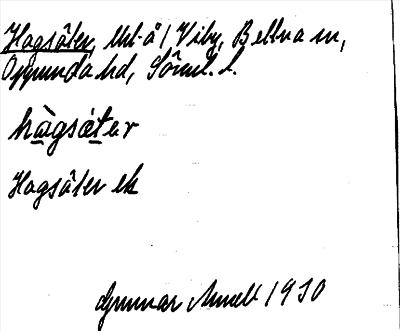 Hagsäter, utl. å / Viby, Bettna sn,
Oppunda hd, Söml. l.
hàgsätər
Hagsäter ek
Gunnar 1930